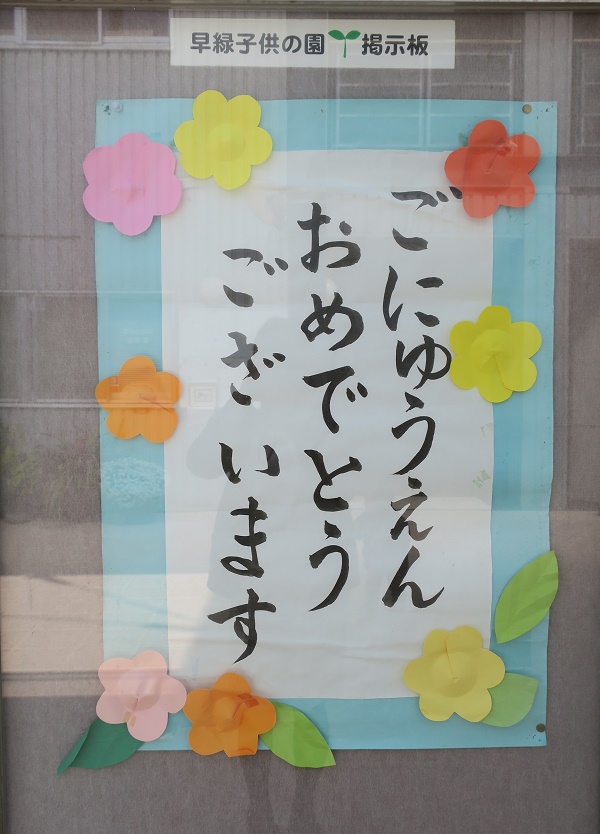 早緑子供の園 掲示板
ごにゅうえん
おめでとう
ございます